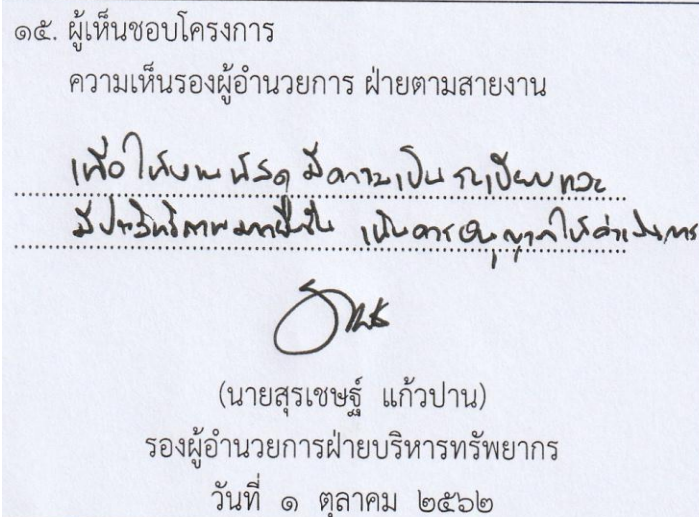 ๑๕. ผู้เห็นชอบโครงการ
ความเห็นรองผู้อำนวยการ ฝ่ายตามสายงาน
เพื่อให้งานพัสดุ มีความเป็นระเบียบและ
มีประสิทธิภาพมากยิ่งขึ้น เห็นควรอนุญาตให้ดำเนินการ
(นายสุรเชษฐ์ แก้วปาน)
รองผู้อำนวยการฝ่ายบริหารทรัพยากร
วันที่ ๑ ตุลาคม ๒๕๖๒